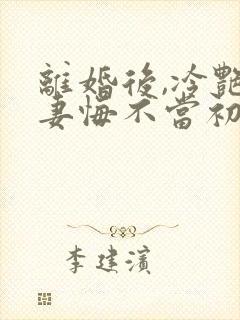 離婚後,冷艷
妻悔不當初
李建濱